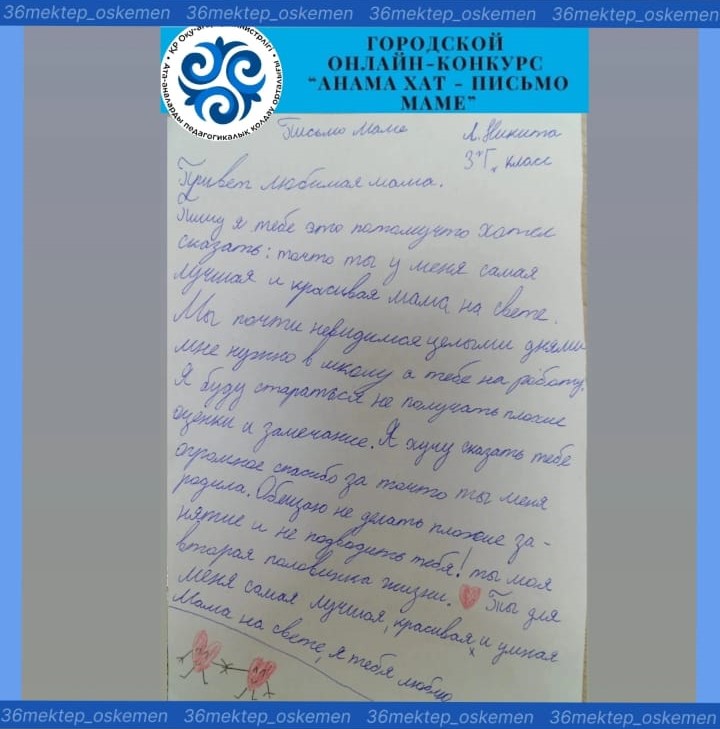 36mektep_oskemen 36mektep_oskemen 36mektep_oskemen 36mektep_oskemen
ГОРОДСКОЙ
ОНЛАЙН-КОНКУРС
“АНАМА ХАТ - ПИСЬМО
МАМЕ”
ҚР Оқу-ағарту министрлігі • Ата-аналарды педагогикалық қолдау орталығы •
Письмо маме Л. Никита
3"Г" класс
Привет любимая мама.
Пишу я тебе это потомучто хотел
сказать: точто ты у меня самая
лучшая и красивая мама, на свете.
Мы почти невидимся целыми днями
мне нужно в школу а тебе на работу.
Я буду стараться не получать плохие
оценки и замечание. Я хочу сказать тебе
огромное спасибо за точто ты меня
родила. Обещаю не делать плохие за-
нятие и не подводить тебя! ты моя
вторая половинка жизни. Ты для
меня самая лучшая, красивая и умная
Мама на свете, я тебя люблю
36mektep_oskemen 36mektep_oskemen 36mektep_oskemen 36mektep_oskemen